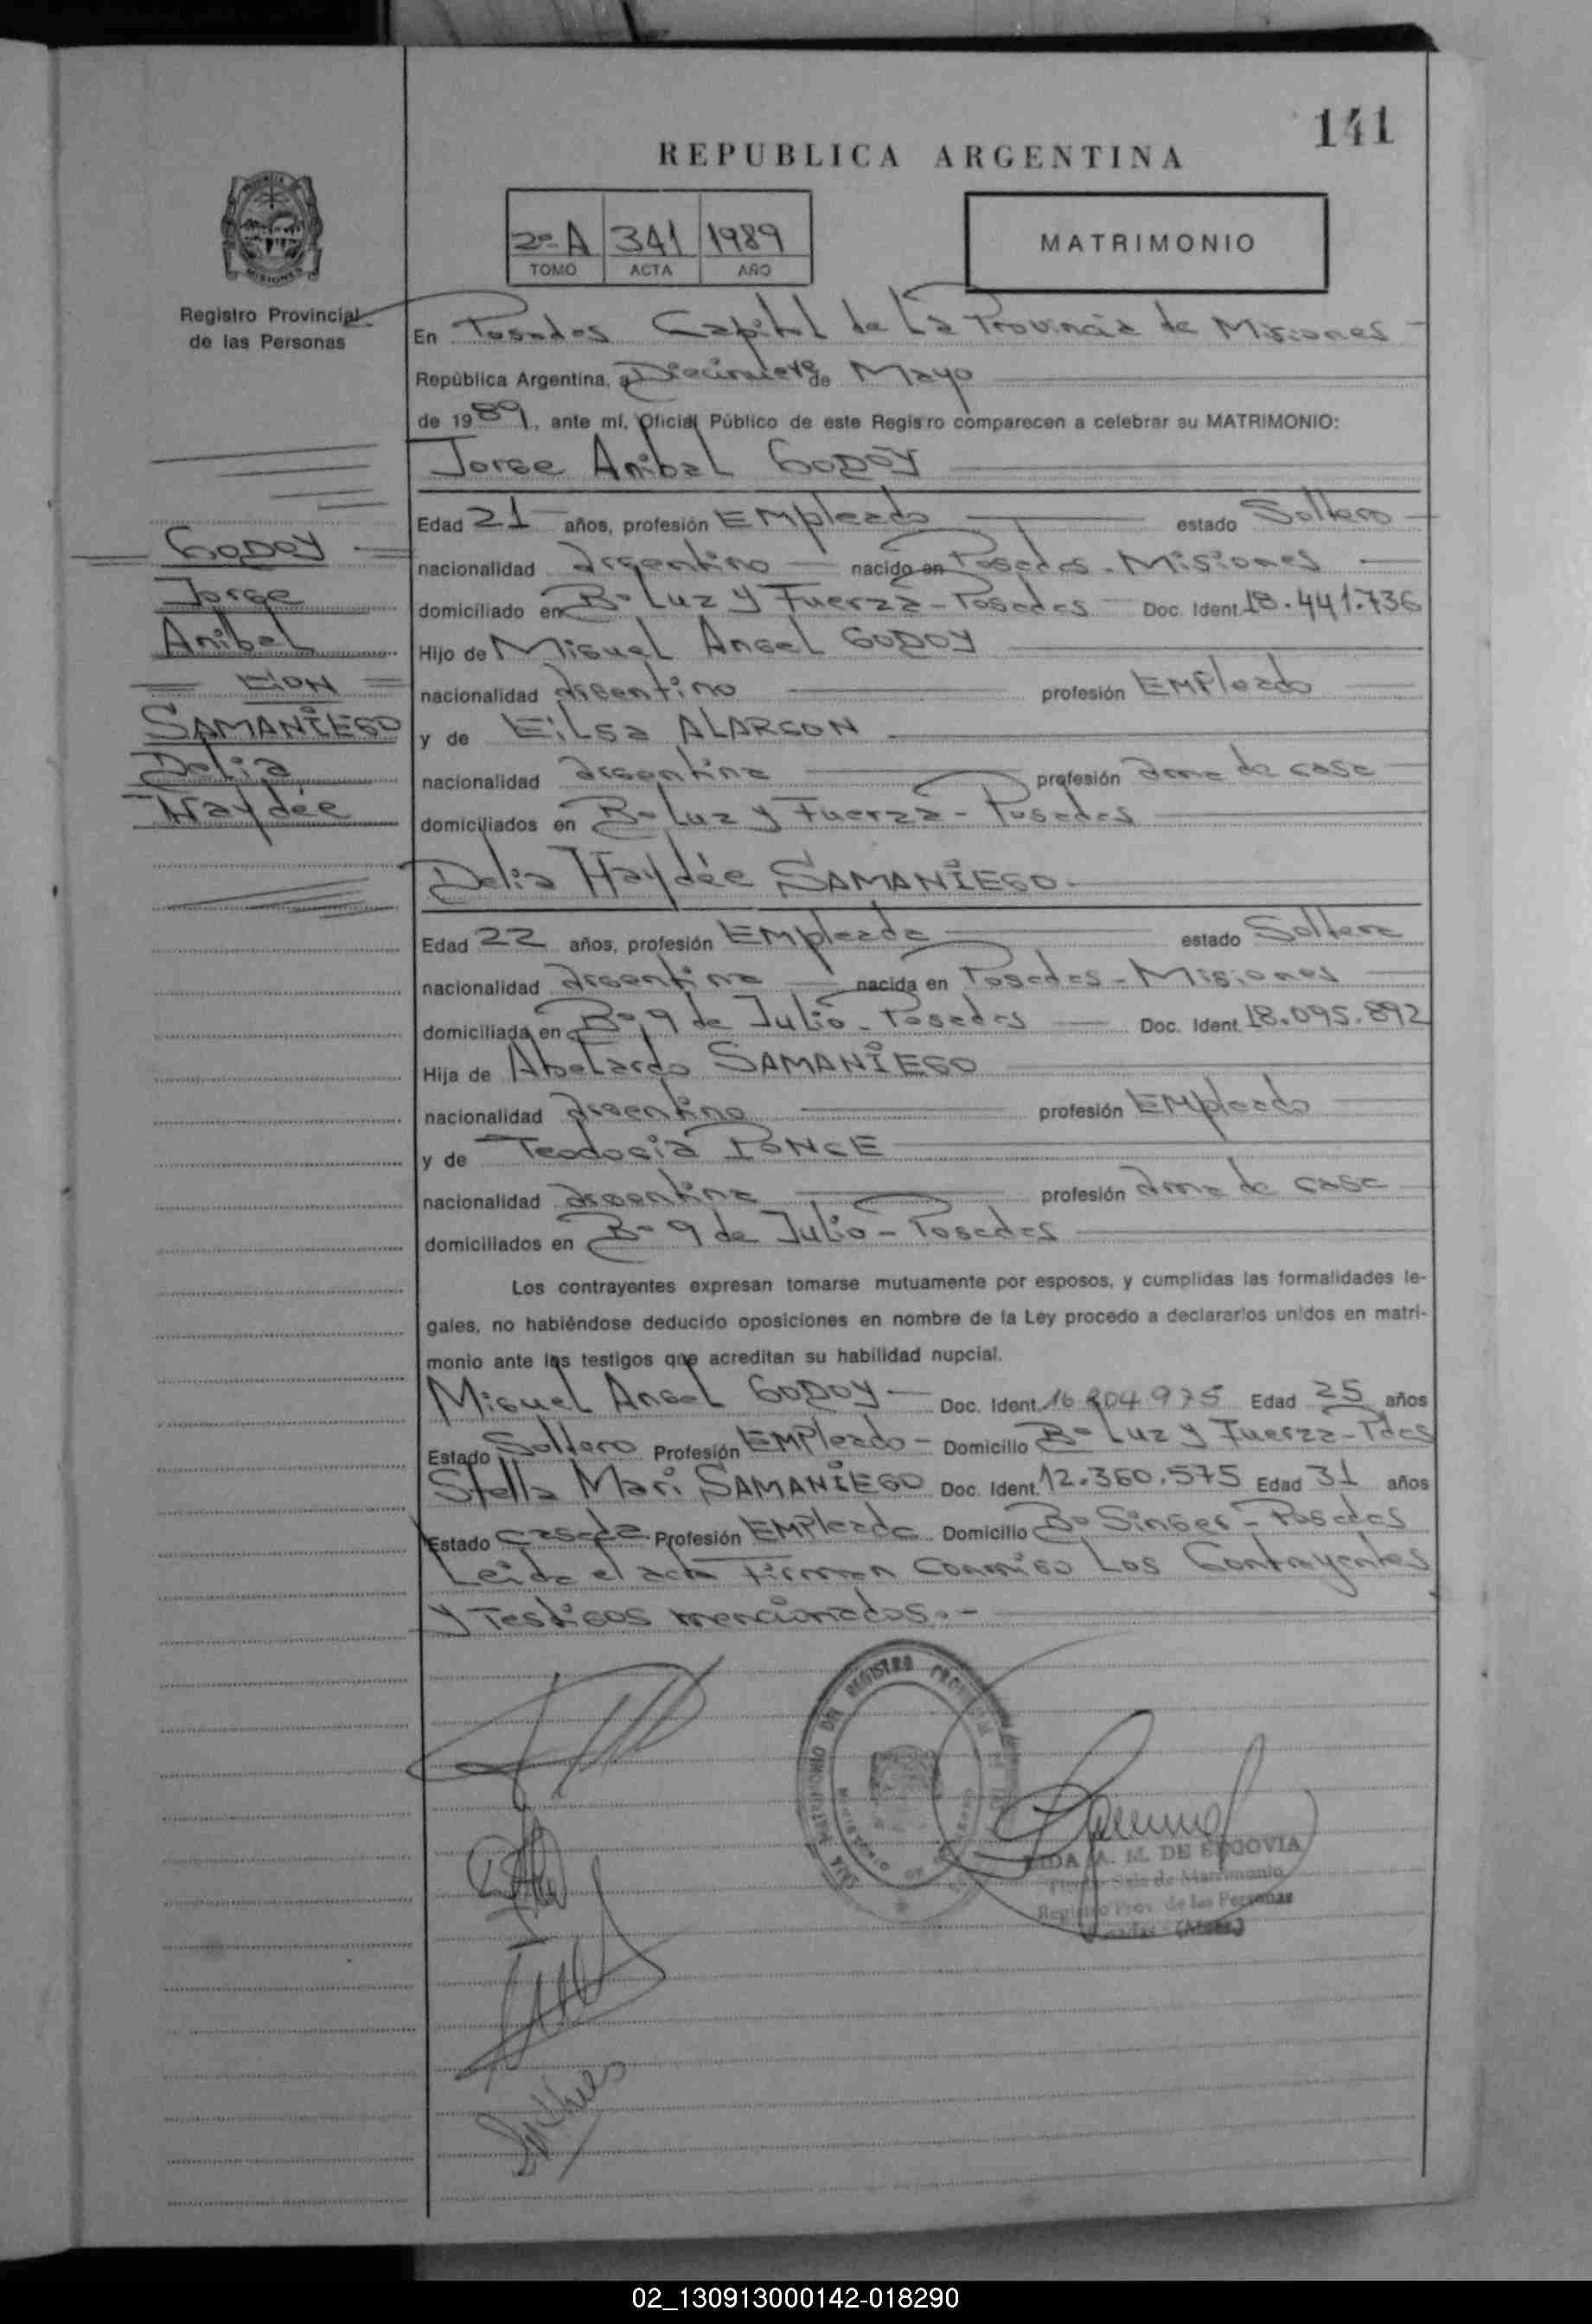 141
REPUBLICA ARGENTINA
2º A 341 1989
TOMO ACTA AÑO
MATRIMONIO
MISIONES
Registro Provincial
de las Personas
En Posadas Capital de La Provincia de Misiones
República Argentina, a de Mayo
de 1989, ante mí, Oficial Público de este Registro comparecen a celebrar su MATRIMONIO:
Jorge Anibal GODOY
Edad 21 años, profesión EMpleado estado Soltero
nacionalidad argentino nacido en Posadas - Misiones
domiciliado en Bº Luz y Fuerza - Posadas Doc. Ident. 18.441.736
Hijo de Miguel Angel GODOY
nacionalidad argentino profesión EMPleado
y de Eilsa ALARCON
nacionalidad argentina profesión ama de casa
domiciliados en Bº Luz y Fuerza - Posadas
GODOY
Jorge
Anibal
CON
SAMANIEGO
Delia
Haydée
Delia Haydée SAMANIEGO.
Edad 22 años, profesión EMpleada estado Soltera
nacionalidad argentina nacida en Posadas - Misiones
domiciliada en Bº 9 de Julio - Posadas Doc. Ident. 18.095.892
Hija de Abelardo SAMANIEGO
nacionalidad argentino profesión EMpleado
y de Teodosia PONCE
nacionalidad argentina profesión ama de casa
domiciliados en Bº 9 de Julio - Posadas
Los contrayentes expresan tomarse mutuamente por esposos, y cumplidas las formalidades le-
gales, no habiéndose deducido oposiciones en nombre de la Ley procedo a declararlos unidos en matri-
monio ante los testigos que acreditan su habilidad nupcial.
Miguel Angel GODOY Doc. Ident. Edad 25 años
Estado Soltero Profesión EMPleado - Domicilio Bº Luz y Fuerza - Pdas
Stella Mari SAMANIEGO Doc. Ident. 12.360.575 Edad 31 años
Estado Casada Profesión EMPleada Domicilio Bº Singer - Posadas
Leida el acta Firman conmigo Los Contrayentes
y Testigos mencionados.-
A. M. DE SEGOVIA
Sala de Matrimonio
Registro Prov. de las Personas
Posadas - (Mnes.)
02_130913000142-018290